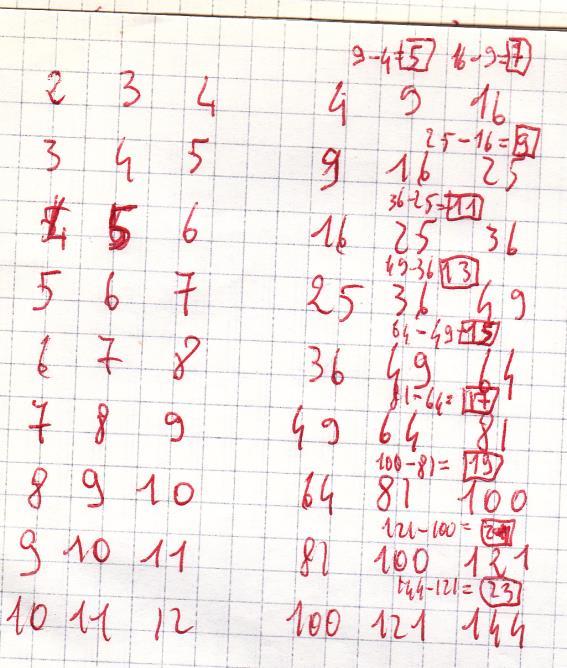 9-4=5 16-9=7
2 3 4 4 9 16
25-16=9
3 4 5 9 16 25
36-25=11
4 5 6 16 25 36
49-36 13
5 6 7 25 36 49
64-49=15
6 7 8 36 49 64
81-64= 17
7 8 9 49 64 81
100-81= 19
8 9 10 64 81 100
121-100= 21
9 10 11 81 100 121
144-121= 23
10 11 12 100 121 144